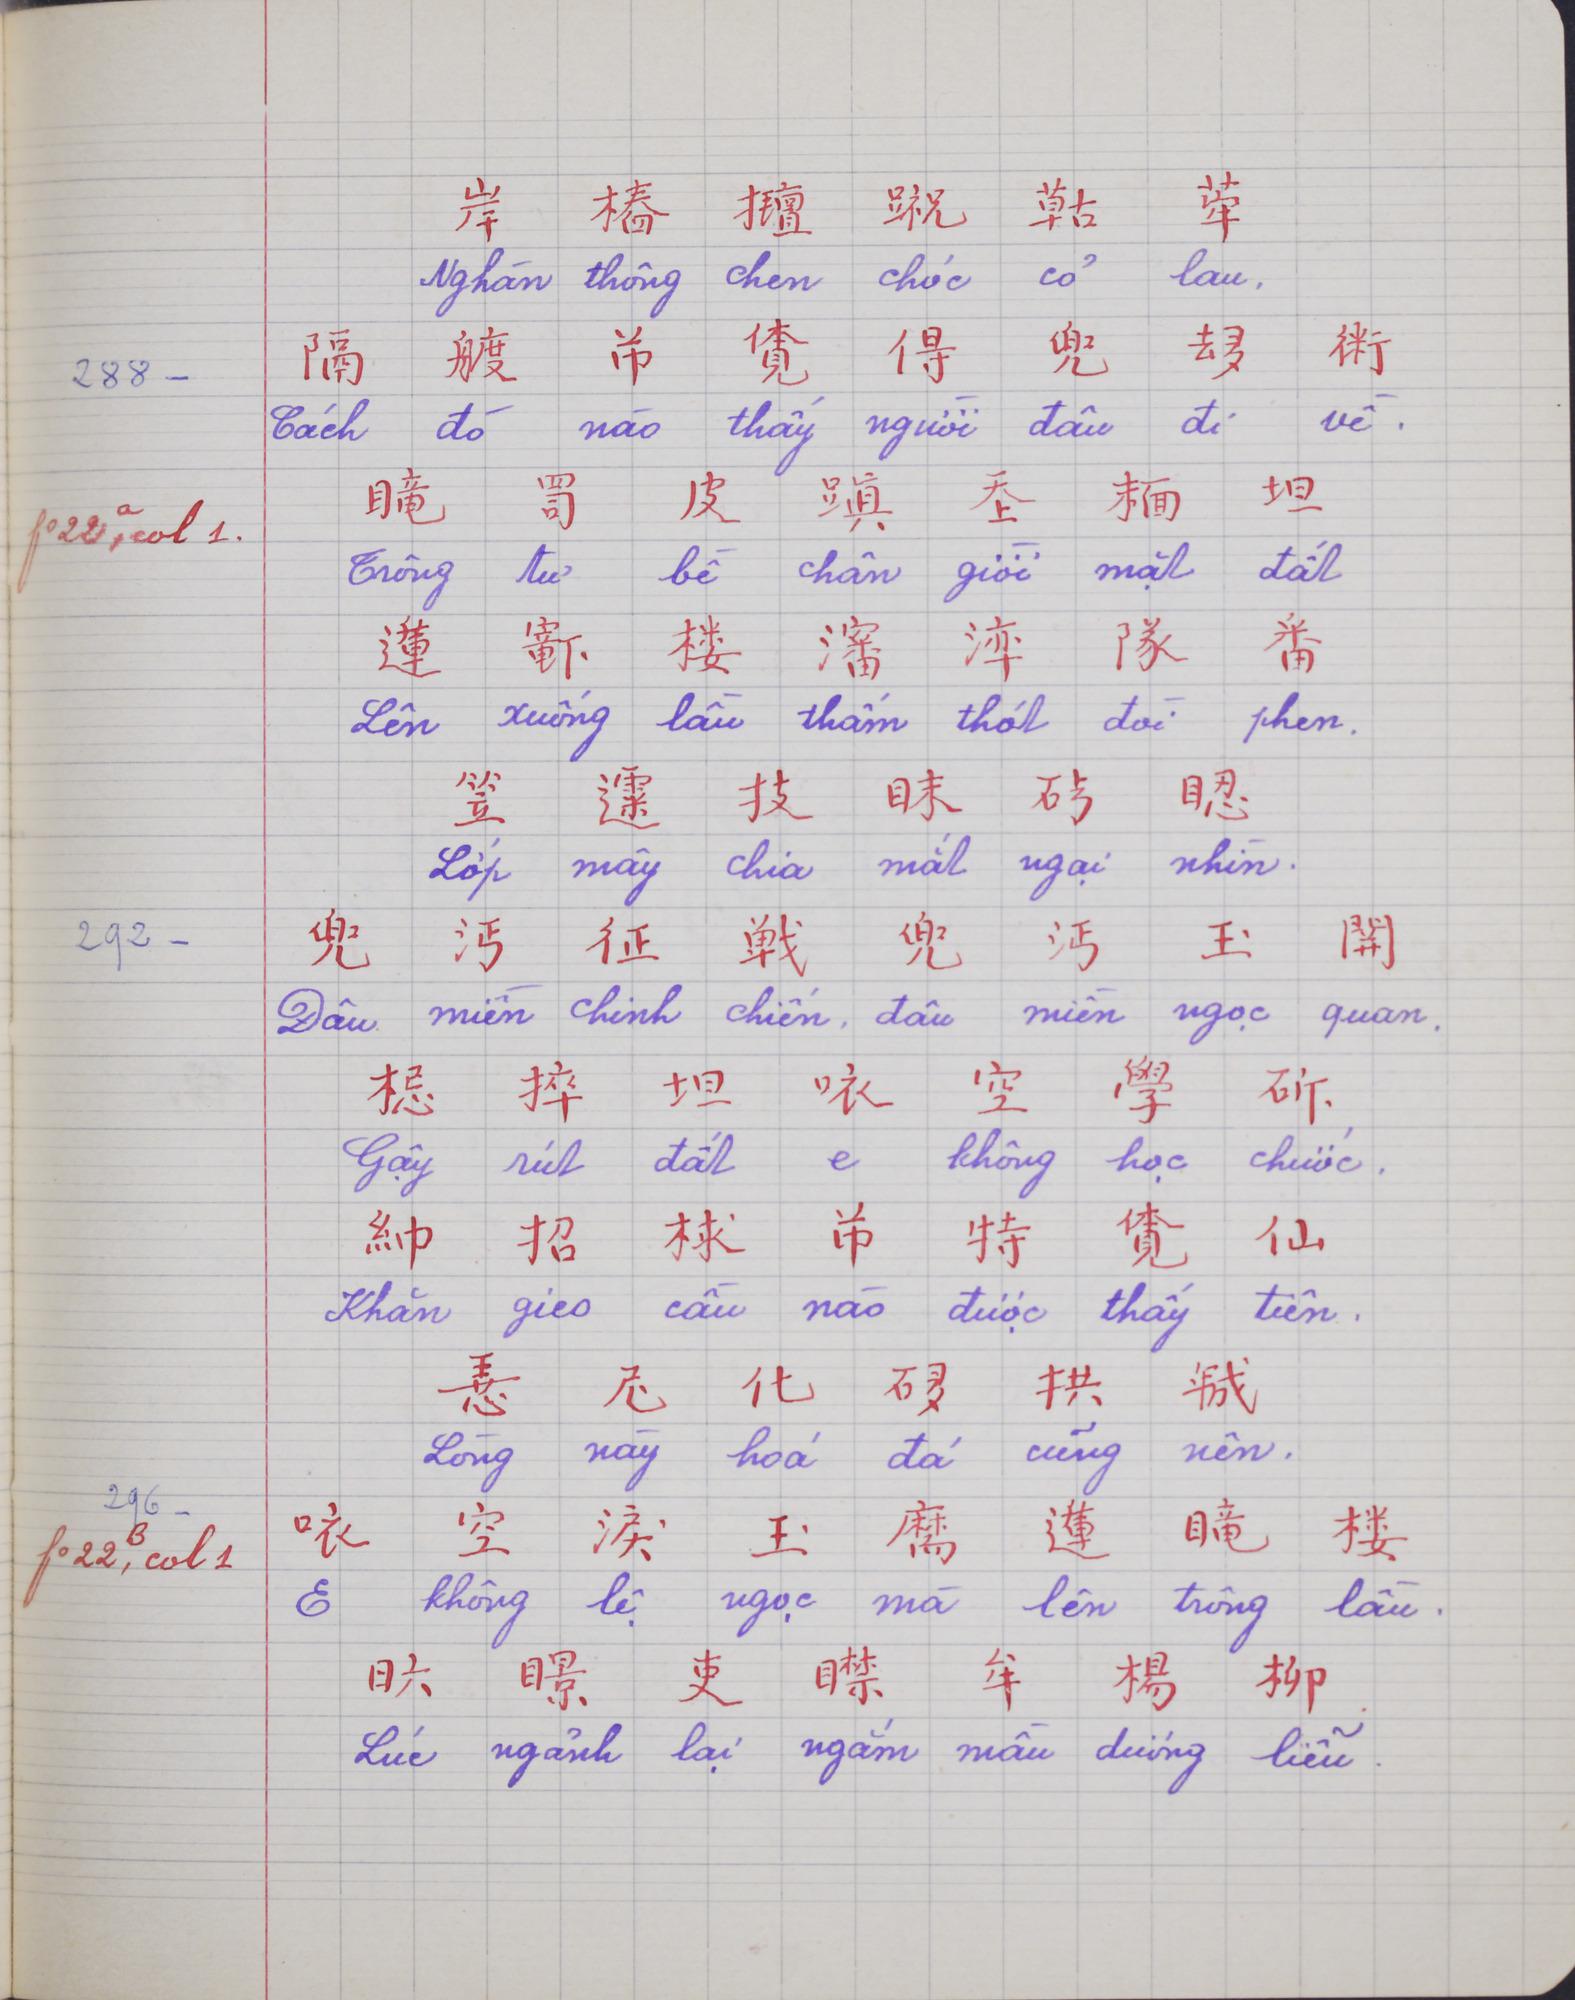 岸 橁 擅 𨁮 𦹵 䔖
Nghàn thông chen chóc cỏ lau.
288 – 隔 艘 芇 𧡊 得 兜 𠫾 術
Cách đò nào thấy người đâu đi về.
fº 22ª, col 1. 𥊣 罒 皮 蹎 𡗶 𩈘 坦
Trông tư bề chân giời mặt đất
𨖲 𡬈 楼 瀋 淬 隊 番
Lên xuống lầu thấm thót đòi phen.
笠 𩄲 技 眜 砖 𥆾
Lớp mây chia mắt ngại nhìn.
292 – 兜 沔 征 戦 兜 沔 玉 関
Đâu miền chinh chiến, đâu miền ngọc quan.
捽 坦 㕤 空 學 斫
Gậy rút đất e không học chước.
招 梂 芇 特 𧡊 仙
Khăn gieo cầu nào được thấy tiên.
𢚸 尼 化 𥒥 拱 𢧚
Lòng này hoá đá cũng nên.
296 – fº 22ᴮ, col 1 㕤 空 淚 玉 麻 𨖲 𥊣 楼
E không lệ ngọc mà lên trông lầu.
𣅶 㬌 吏 𥋴 牟 楊 柳
Lúc ngảnh lại ngắm mầu dương liễu.